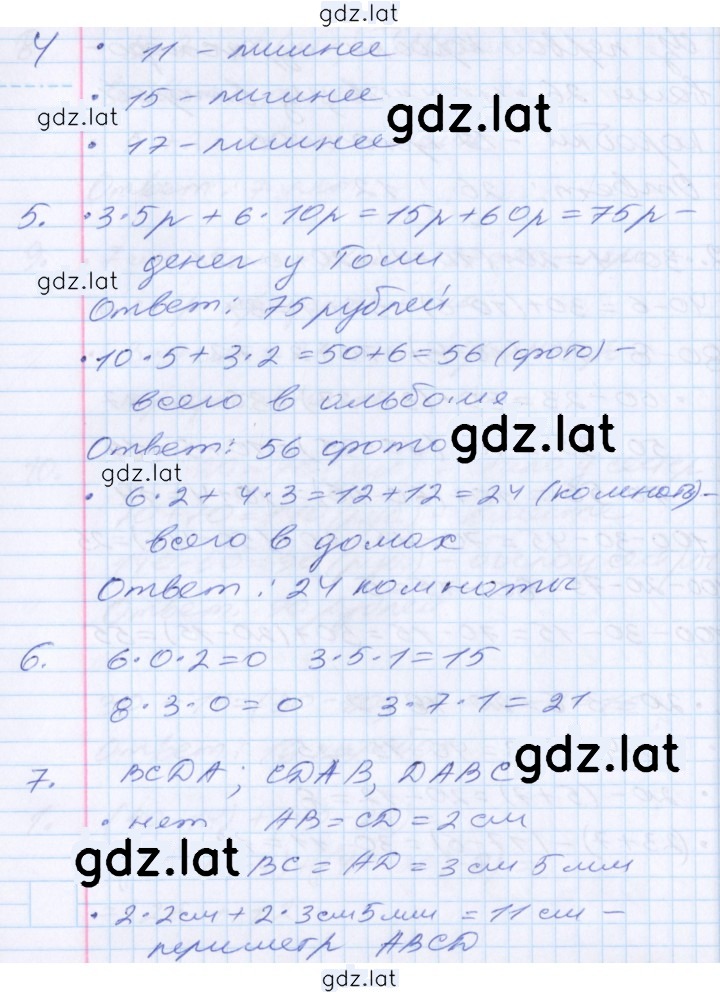 gdz.lat
4 • 11 – лишнее
• 15 – лишнее
gdz.lat gdz.lat
• 17 – лишнее
5. • 3·5р + 6·10р = 15р + 60р = 75р –
денег у Толи
gdz.lat
Ответ: 75 рублей
• 10·5 + 3·2 = 50 + 6 = 56 (фото) –
всего в альбоме
Ответ: 56 фото
gdz.lat
gdz.lat
• 6·2 + 4·3 = 12 + 12 = 24 (комнаты) –
всего в домах
Ответ: 24 комнаты
6. 6·0·2 = 0 3·5·1 = 15
8·3·0 = 0 3·7·1 = 21
gdz.lat
7. BCDA; CDAB, DABC
• нет AB = CD = 2 см
gdz.lat
BC = AD = 3 см 5 мм
• 2·2см + 2·3см5мм = 11 см –
периметр ABCD
gdz.lat